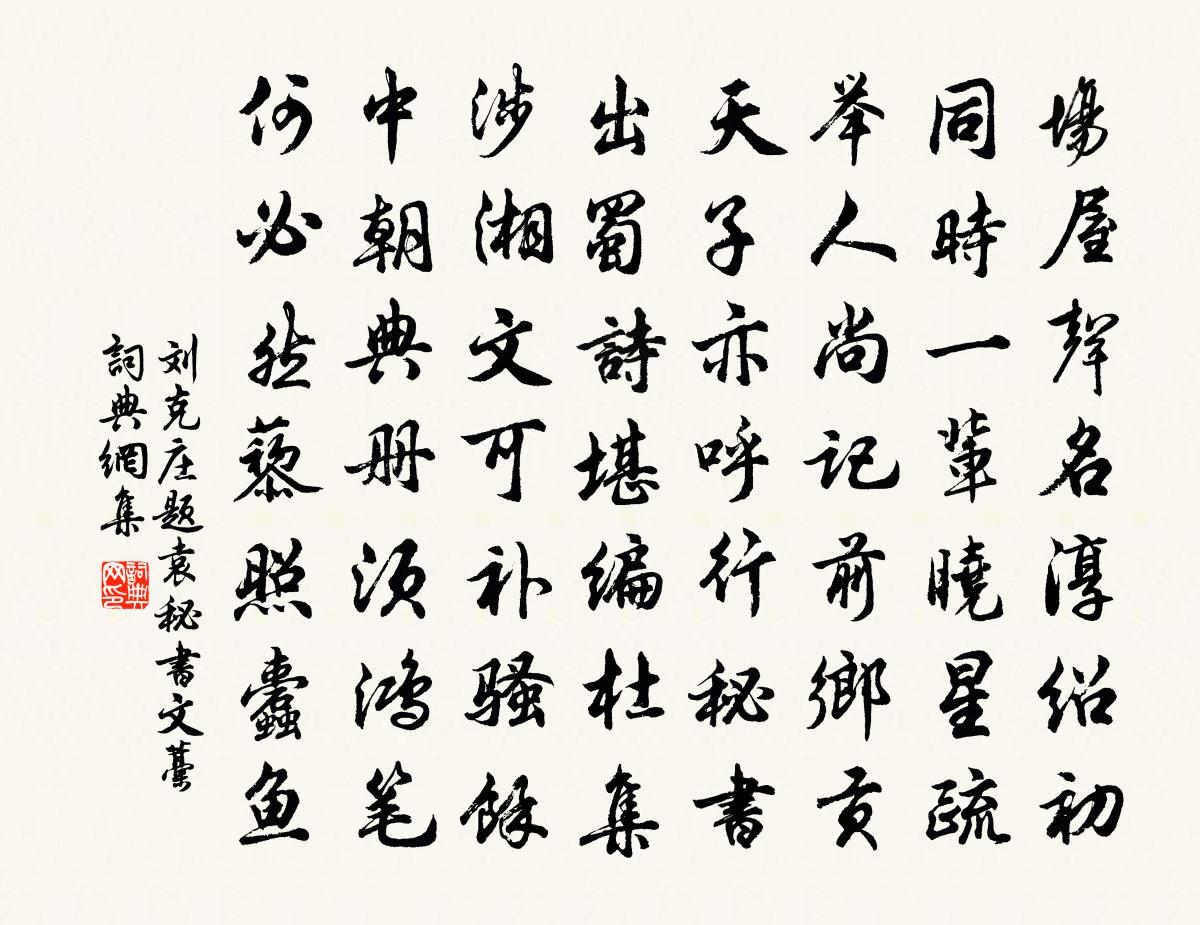 場屋聲名淳绍初
同時一輩曉星疏
举人尚记前鄉贡
天子亦呼行秘書
出蜀詩堪编杜集
涉湘文可补骚馀
中朝典册须鸿笔
何必然藜照蠹鱼
刘克庄题袁秘書文藁
詞典網集
詞典网印